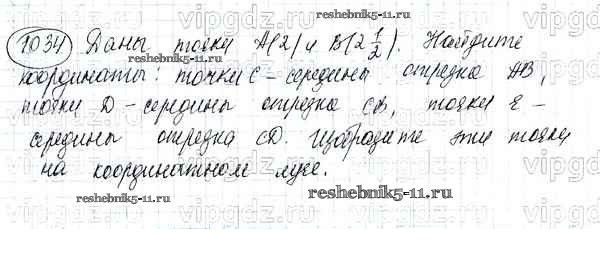 1034 Даны точки A(2) и B(2 1/2). Найдите
координаты: точки C – середины отрезка AB,
точки D – середины отрезка CB, точки E –
середины отрезка CD. Изобразите эти точки
на координатном луче.
reshebnik5-11.ru
reshebnik5-11.ru
vipgdz.ru